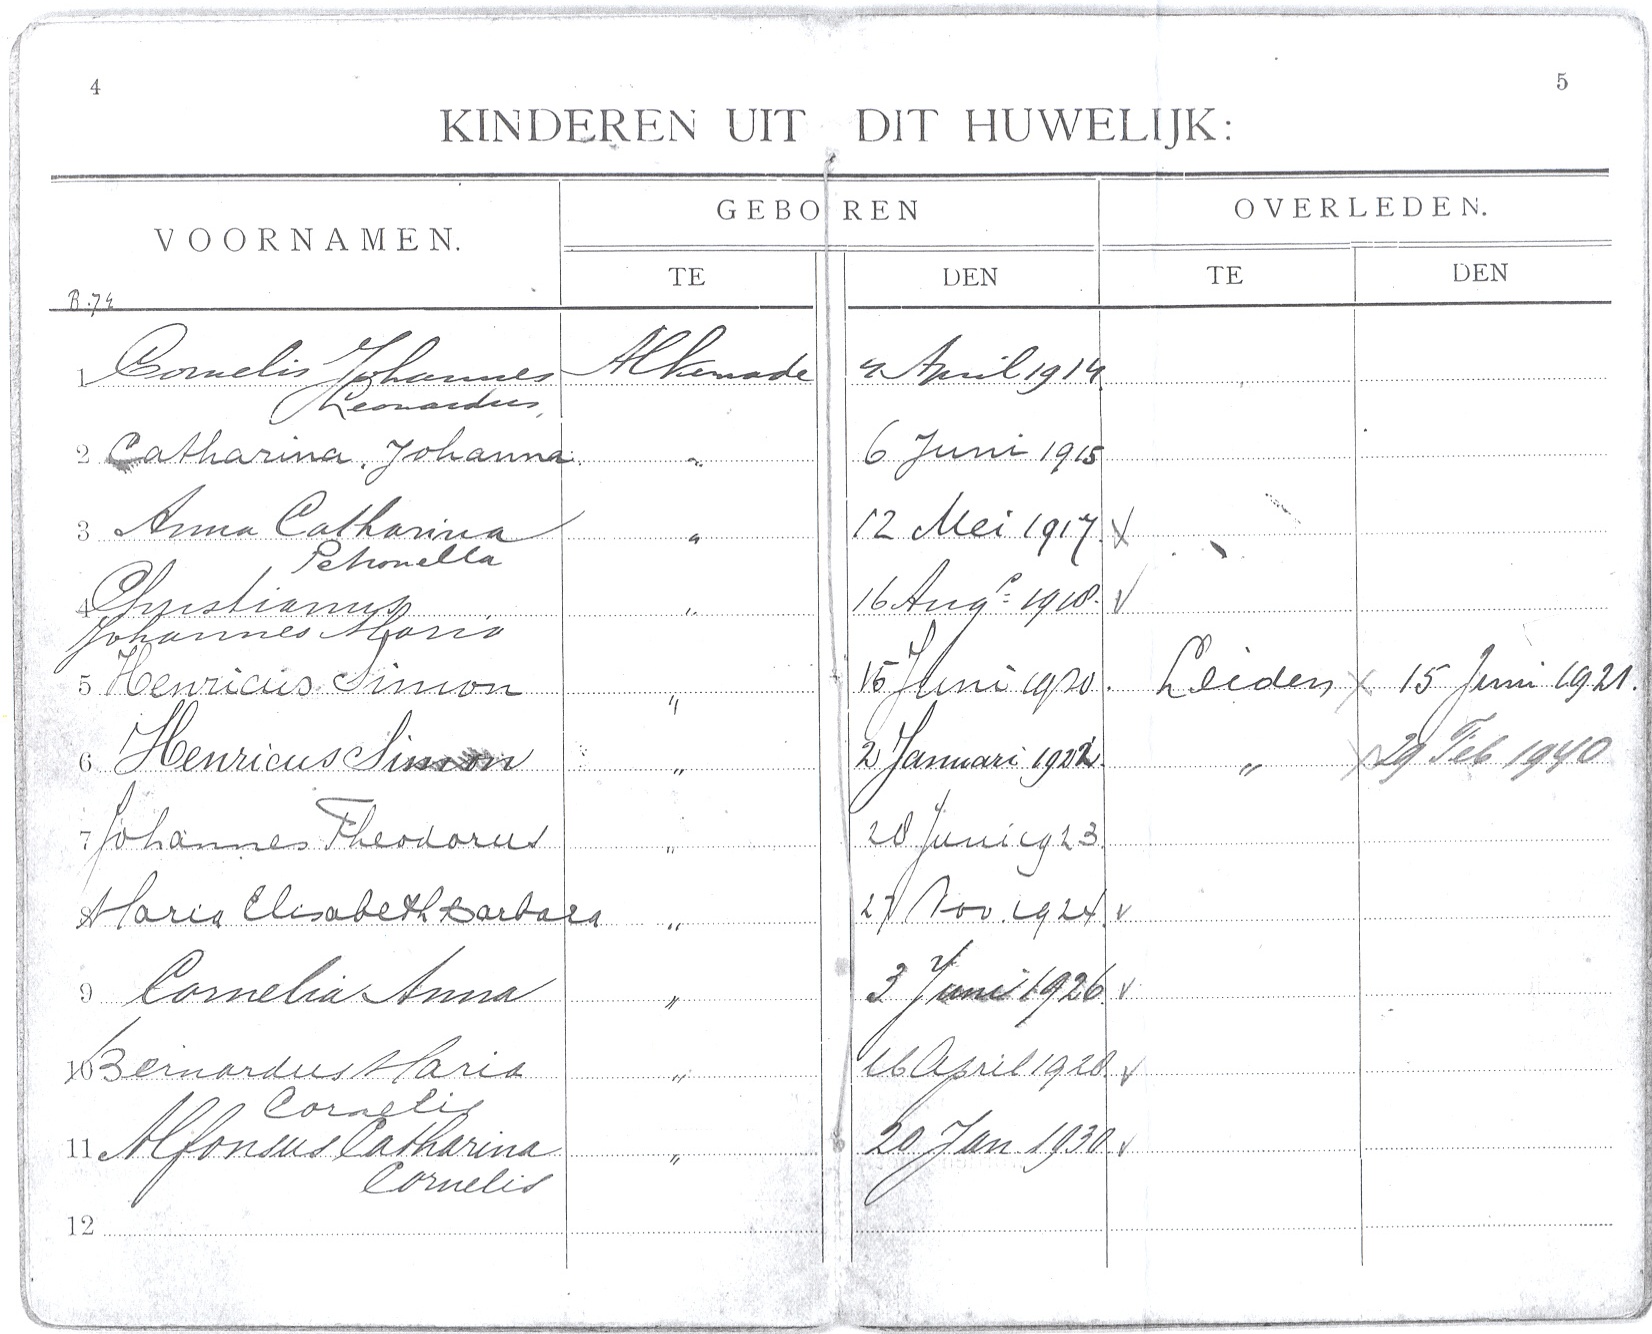 4
5
KINDEREN UIT DIT HUWELIJK:
VOORNAMEN.
GEBOREN
OVERLEDEN.
TE
DEN
TE
DEN
B:74
1 Cornelis Johannes Alkemade 4 April 1914
Leonardus,
2 Catharina Johanna " 6 Juni 1915
3 Anna Catharina " 12 Mei 1917
Petronella
4 Christianus " 16 Aug. 1918.
Johannes Maria
5 Henricus Simon " 15 Juni 1920. Leiden x 15 Juni 1921.
6 Henricus Simon " 2 Januari 1922. " x 29 Feb 1940
7 Johannes Theodorus " 28 Juni 1923.
Maria Elisabeth Barbara " 27 Nov. 1924. v
9 Cornelia Anna " 3 Juni 1926 v
10 Bernardus Maria " 16 April 1928 v
Cornelis
11 Alfonsus Catharina " 20 Jan 1930 v
Cornelis
12